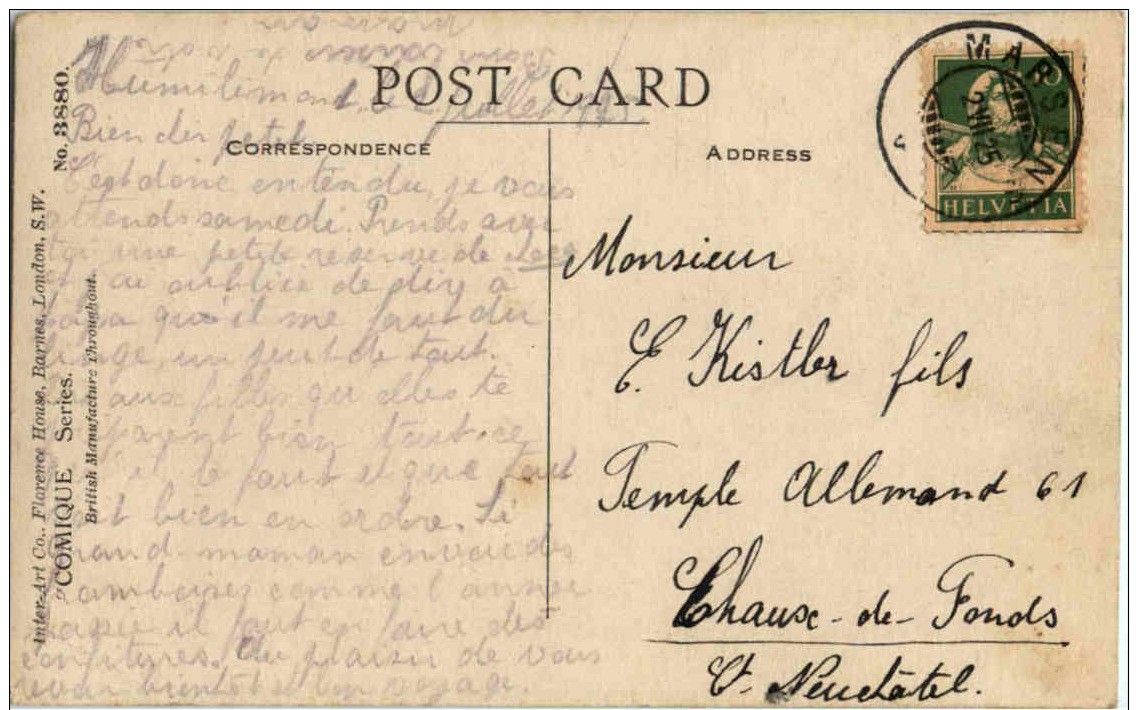 POST CARD
CORRESPONDENCE
ADDRESS
No. 3880.
"COMIQUE Series.
Inter-Art Co., Florence House, Barnes, London, S.W.
British Manufacture Throughout.
MARSEN
2 VII 25
10
HELVETIA
Bien cher petit
C'est donc entendu, je vous
attends samedi. Prends avec
toi une petite réserve de
oublier de dire à
papa qu'il me faut du
linge, un peu de tout.
aux filles qu'elles te
bien tout ce
qu'il te faut et que tout
soit bien en ordre. Si
grand-maman envoie des
framboises comme l'année
passée il faut en faire des
confitures. Au plaisir de vous
revoir bientôt et bon voyage.
Monsieur
E. Kistler fils
Temple Allemand 61
Chaux-de-Fonds
Ct. Neuchâtel.